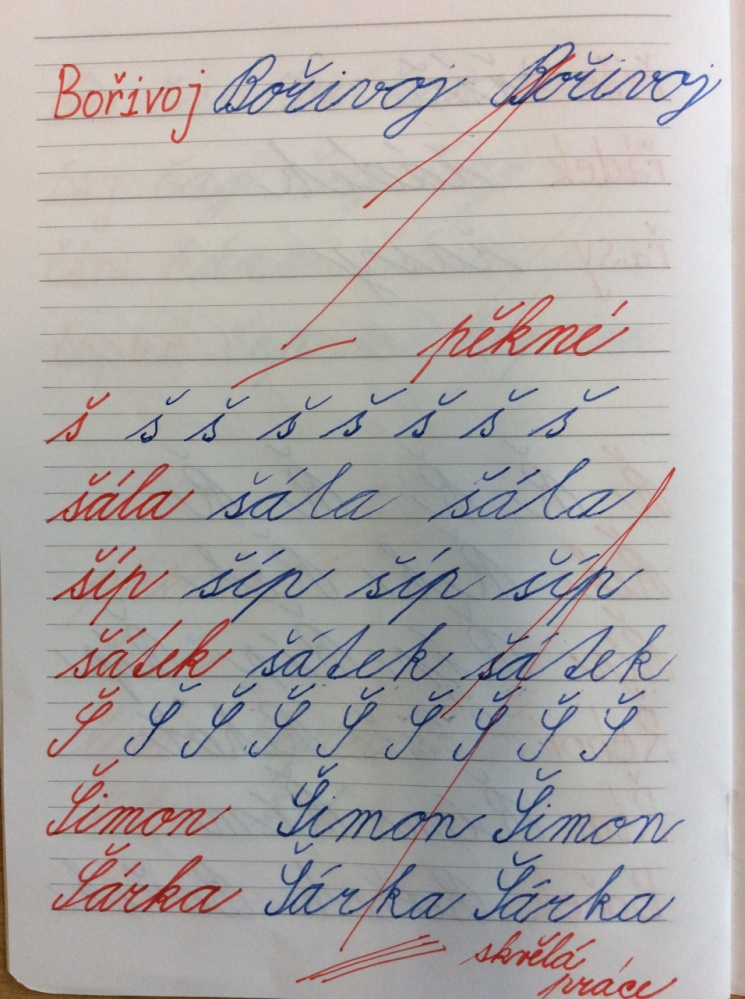 Bořivoj Bořivoj Bořivoj
pěkné
š š š š š š š š
šála šála šála
šíp šíp šíp šíp
šátek šátek šátek
Š Š Š Š Š Š Š Š Š
Šimon Šimon Šimon
Šárka Šárka Šárka
skvělá
práce